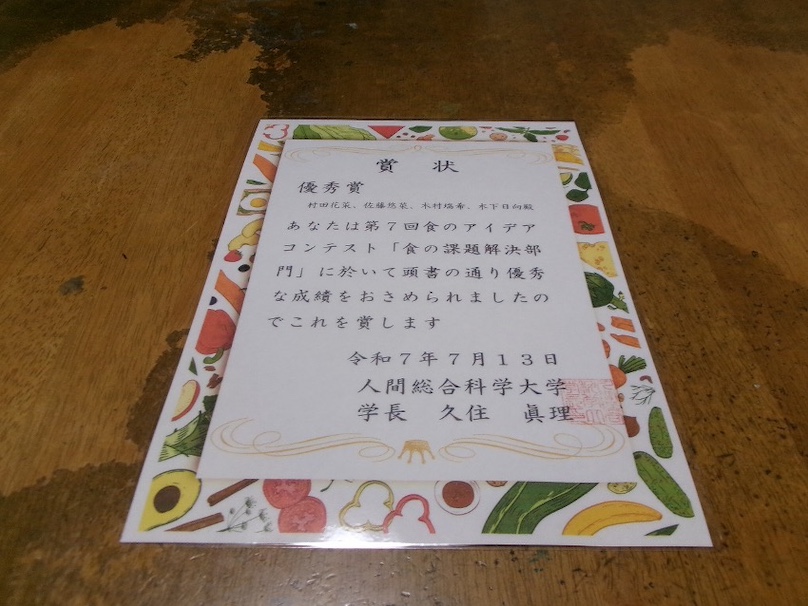 賞状
優秀賞
村田花菜、佐藤悠菜、木村瑞希、木下日向殿
あなたは第7回食のアイデア
コンテスト「食の課題解決部
門」に於いて頭書の通り優秀
な成績をおさめられましたの
でこれを賞します
令和7年7月13日
人間総合科学大学
学長 久住 眞理